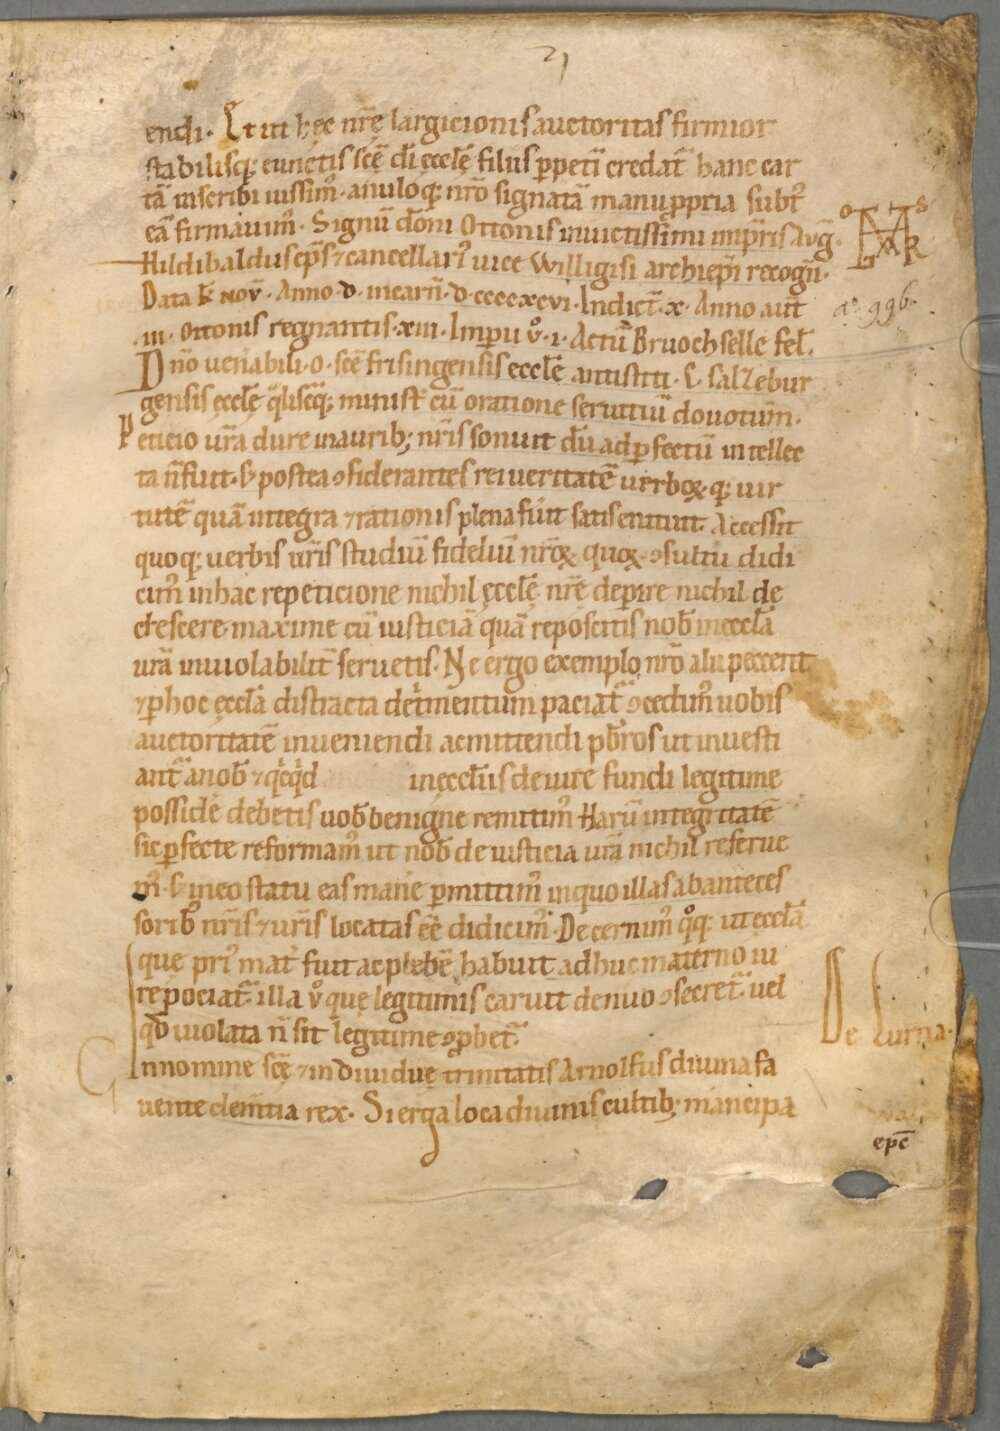 21
endi· Et ut hęc nr̄ę largicionis auctoritas firmior
stabilisq; cunctis scē dī ęcclē filiis ꝑpetī credat̄ hanc car
tā inscribi iussim᷒· anuloq; nr̄o signatā manu ꝓpria subt᷒
eā firmauim᷒· Signū dōni Ottonis inuictissimi imꝑris Aug̅·
Hildibaldus ep̄s ⁊ cancellari᷒ uice Willigisi archiep̄i recogn̄·
Data k̄ nov̄· Anno·d·incarn̄·dcccc xcvi· Indict̄·x· Anno aut̄
·iii· Ottonis regnantis·xiii· Imꝑii v̊·i· Actū Bruochselle fel̄·
a°· 996·
Dn̄o uen̄abili·o· scē frisingensis ecclē antistiti·l· salzebur
gensis ęcclę q̄liscūq; minist̄ cū oratione seruitiū douotum·
Peticio ur̄a dure in aurib; nr̄is sonuit dū ad ꝑfectū intellec
ta n̄ fuit· ꝫ postea ꝯsiderantes rei ueritatē uerboꝝ·q; uir
tutē quā integra ⁊ rationis plena fuit satis enituit· Accessit
quoq; uerbis ur̄is studiū fideliū nr̄oꝝ· quoꝝ ꝯsultu didi
cim᷒ in hac repeticione nichil ęcclę nr̄e deꝑire nichil de
crescere maxime cū iusticiā quā reposcitis nob̄ in ecclā
ur̄a inuiolabilit̄ seruetis· Ne ergo exemplo nr̄o alii peccent
⁊ ꝑ hoc ęcclā distracta det̄imentum paciat̄ ꝯcedim᷒ uobis
auctoritatē inueniendi ac mittendi pb̄ros ut inuesti
ant̄ a nob̄ ⁊ qͥcqͥd in ęccliis de iure fundi legitime
possidē debetis uob̄ benigne remittim᷒ Harū integritatē
sic ꝑfecte reformam᷒ ut nob̄ de iusticia ur̄a nichil reserue
m᷒· ꝫ in eo statu eas manē ꝑmittim᷒ in quo illas ab anteces
sorib᷒ nr̄is ⁊ ur̄is locatas eē didicim᷒· Decernim᷒ q̊q; ut ęcclā
que pri᷒ mat̄ fuit ac plebē habuit adhuc materno iu
re pociat̄· illa v̊ que legitimis caruit denuo ꝯsecret̄· uel
qd̄ uiolata n̄ sit legitime ꝯꝓbet̄·
De Lurna·
In nomine scę ⁊ indiuiduę trinitatis Arnolfus diuina fa
uente clem̄tia rex· Si erga loca diuinis cultib; mancipa
epē